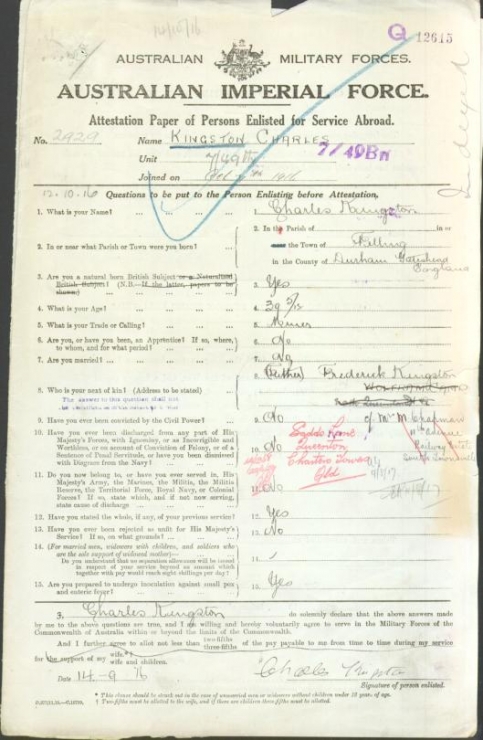 14/10/16
Q 12615
AUSTRALIAN MILITARY FORCES.
AUSTRALIAN IMPERIAL FORCE.
Attestation Paper of Persons Enlisted for Service Abroad.
No. 2929 Name KINGSTON CHARLES
Unit 7/49th 7/49Bn
Joined on Oct 7th 1916
12-10-16 Questions to be put to the Person Enlisting before Attestation.
1. What is your Name? 1. Charles Kingston
2. In or near what Parish or Town were you born? 2. In the Parish of in or
near the Town of Felling
in the County of Durham Gateshead
England
3. Are you a natural born British Subject or a Naturalized
British Subject? (N.B.—If the latter, papers to be
shown.) 3. Yes
4. What is your Age? 4. 39 5/12
5. What is your Trade or Calling? 5. Miner
6. Are you, or have you been, an Apprentice? If so, where,
to whom, and for what period? 6. No
7. Are you married? 7. No
8. Who is your next of kin? (Address to be stated) 8. (Father) Frederick Kingston
9. Have you ever been convicted by the Civil Power? 9. No
of Mrs M. Chapman
10. Have you ever been discharged from any part of His
Majesty's Forces, with Ignominy, or as Incorrigible and
Worthless, or on account of Conviction of Felony, or of a
Sentence of Penal Servitude, or have you been dismissed
with Disgrace from the Navy? 10. No
Queenton
Charters Towers
Qld
11. Do you now belong to, or have you ever served in, His
Majesty's Army, the Marines, the Militia, the Militia
Reserve, the Territorial Force, Royal Navy, or Colonial
Forces? If so, state which, and if not now serving,
state cause of discharge 11. No
12. Have you stated the whole, if any, of your previous service? 12. Yes
13. Have you ever been rejected as unfit for His Majesty's
Service? If so, on what grounds? 13. No
14. (For married men, widowers with children, and soldiers who
are the sole support of widowed mother)—
Do you understand that no separation allowance will be issued
in respect of your service beyond an amount which
together with pay would reach eight shillings per day? 14.
15. Are you prepared to undergo inoculation against small pox
and enteric fever? 15. Yes
I, Charles Kingston do solemnly declare that the above answers made
by me to the above questions are true, and I am willing and hereby voluntarily agree to serve in the Military Forces of the
Commonwealth of Australia within or beyond the limits of the Commonwealth.
And I further agree to allot not less than two-fifths
three-fifths of the pay payable to me from time to time during my service
for the support of my wife.
wife and children.
Date 14-9-16 Charles Kingston
Signature of person enlisted.
* This clause should be struck out in the case of unmarried men or widowers without children under 18 year of age.
† Two-fifths must be allotted to the wife, and if there are children three-fifths must be allotted.